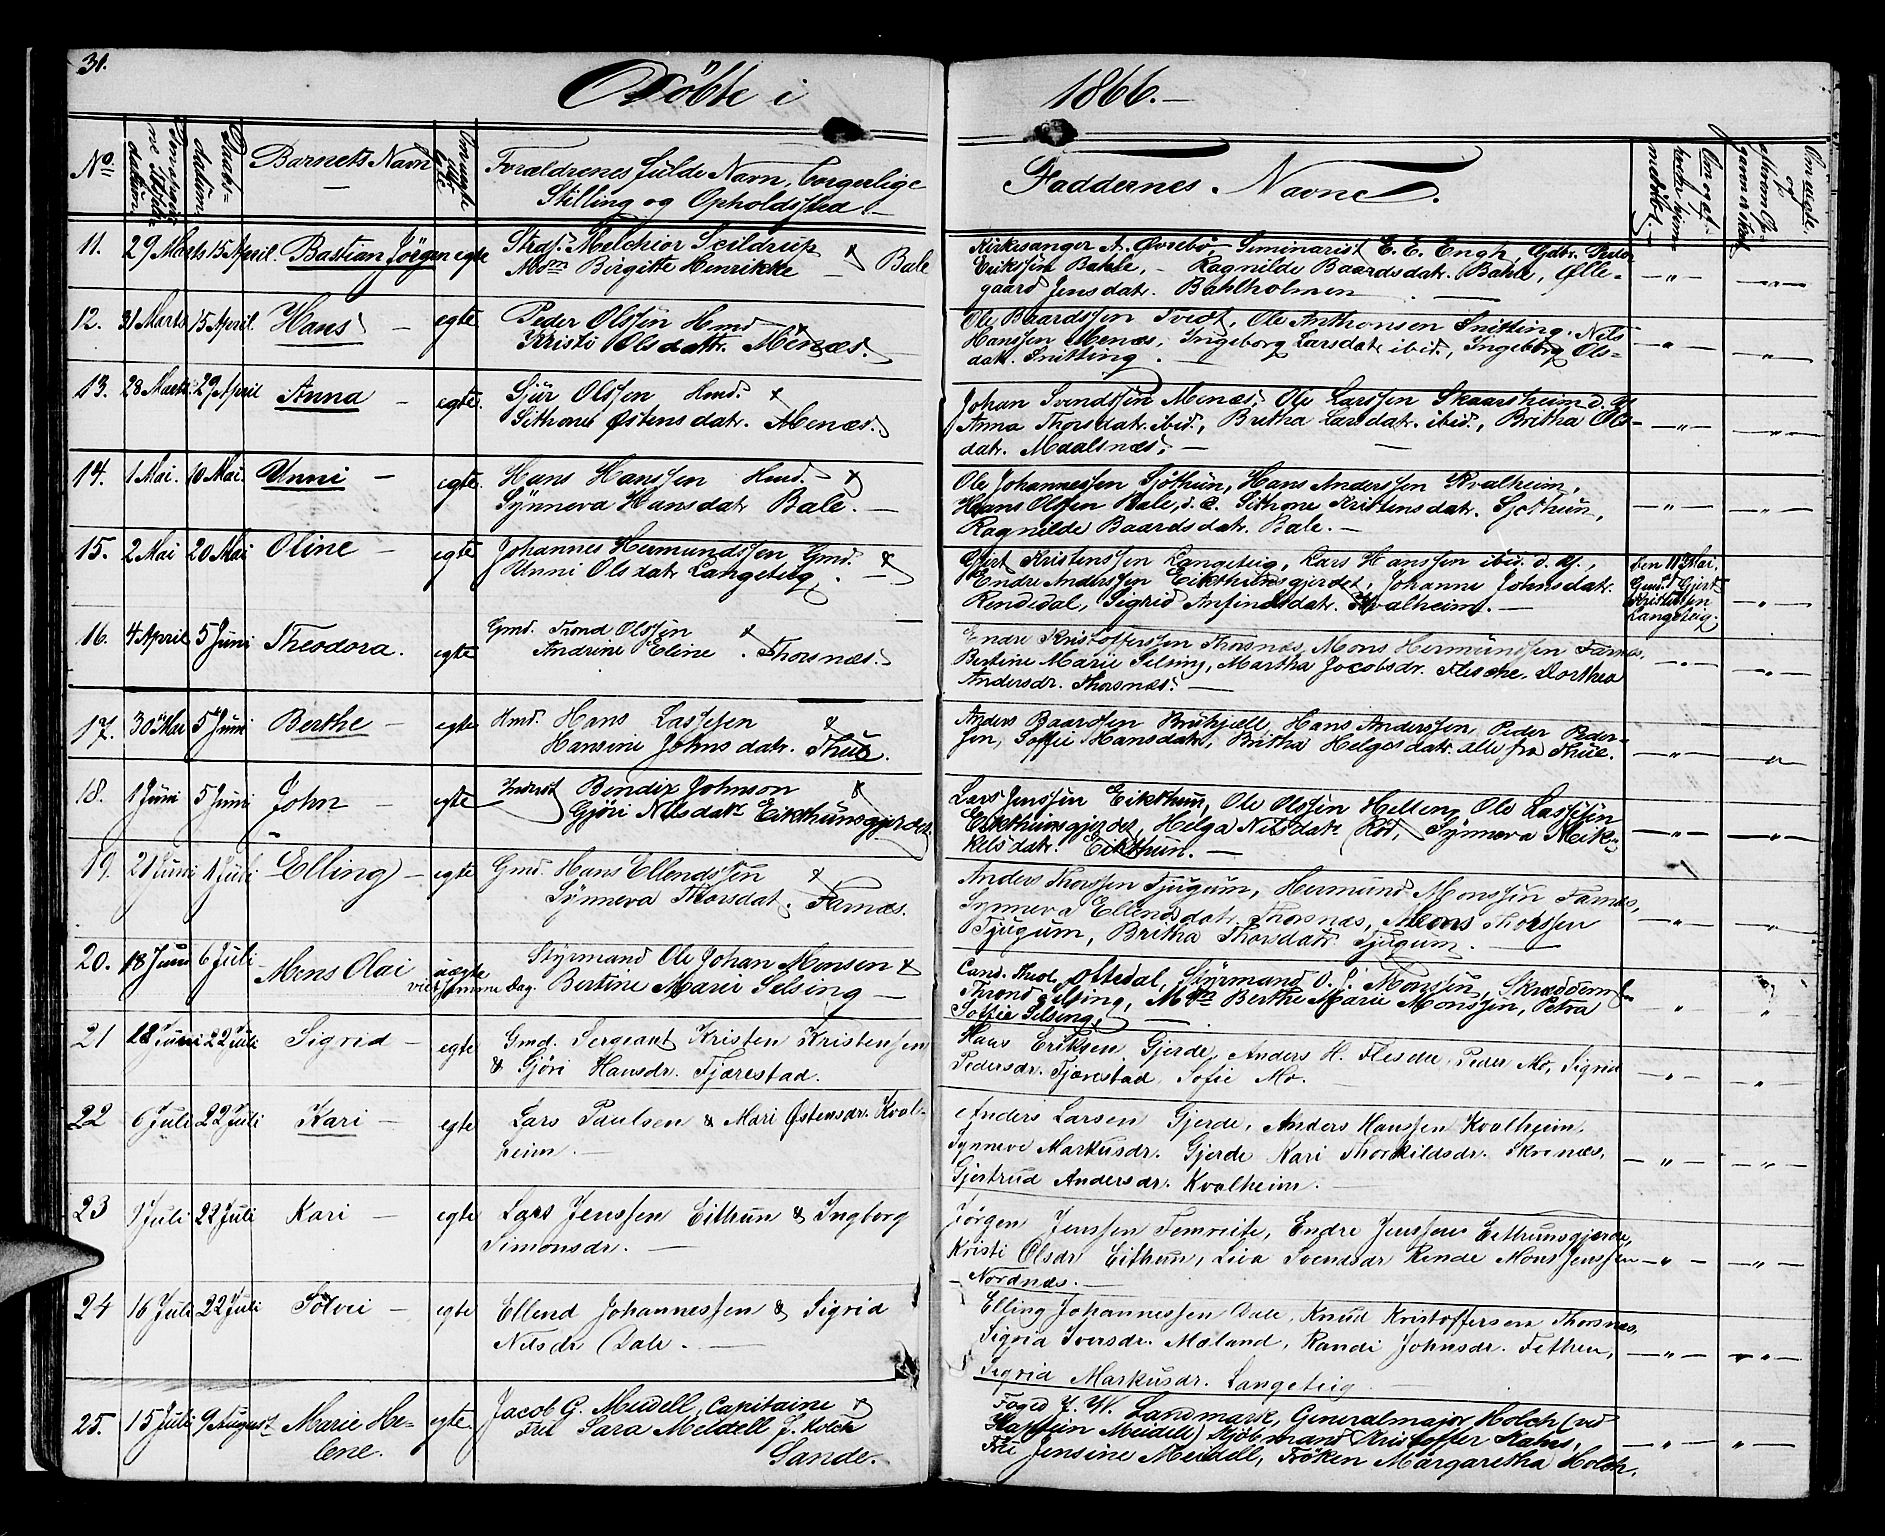 31.
Döbte i 1866.—
No
Barnets Navn
Forældrenes fulde Navn, borgerlige
Stilling og Opholdssted —
Faddernes Navne.
11. 29 Marts 15 April. Bastian Jörgen egte Melchior Seildrup &
Birgitte Henrikke — Bale
Kirkesanger A. Øvrebö Seminarist E. E. Engh, Gdbr. Peder
Erikssön Bahle, — Ragnilde Baardsdatr. Bahle, Ølle-
gaard Jensdatr. Bahlholmen — „ — — „ —
12. 31 Marts 15 April. Hans — egte Peder Olssön Hmd. &
Kristi Olsdattr. Menæs.
Ole Baardssen Tvedt, Ole Anthonsen Snitting, Nils
Hanssen Menæs, Ingeborg Larsdatr ibid., Ingeborg Ols-
datr. Snitting. — „ — — „ —
13. 28 Marts 29 April Anna — egte. Sjur Olssen Hmd. &
Sithone Østensdatr. Menæs.
Johan Svendssen Menæs, Ole Larssen Skaarsheim d. y.
Anna Thorsdatr. ibid., Bretha Larsdatr. ibid., Britha Ols-
datr. — „ — — „ —
14. 1 Mai. 10 Mai. Unni — egte. Hans Hanssen Hmd. &
Synneva Hansdatr Bale. —
Ole Johannessen Sjöthun, Hans Anderssen Kvalheim,
Hans Olssen Bale, d. æ. Sithone Kristensdatr. Sjöthun,
Ragnilde Baardsdatr. Bale. — — „ — — „ —
15. 2 Mai 20 Mai Oline — egte Johannes Hermundssen Gmd. &
Unni Olsdatr Langeteig. —
Gjert Kristenssen Langeteig, Lars Hanssen ibid. d. y.,
Endre Anderssen Eikthunsgjerdet, Johanne Johnsdatr.
Rendedal, Sigrid Anfindsdatr. Kvalheim. —
den 11 Mai,
Gmd Gjert
Kristensen
Langeteig. — „ —
16. 4 April 5 Juni Theodora. egte Gmd. Trond Olssen &
Andrine Eline . Thorsnæs.
Endre Kristofferssen Thorsnæs, Mons Hermundssen Farnes,
Bertine Marie Selsing, Martha Jacobsdr. Flesche, Dorthea
Andersdr. Thorsnæs. — — „ — — „ —
17. 30 Mai 5 Juni Berthe — egte Hmd. Hans Lassesen &
Hansine Johnsdatr. Thue.
Anders Baarssen Bruhjell, Hans Anderssen, Peder Peder-
sen, Soffie Hansdatr., Britha Helgesdatr. alle fra Thue. — „ — — „ —
18. 1 Juni 5 Juni John — egte Inderst Bendix Johnson &
Gjöri Nilsdatr Eikthunsgjerdet
Lars Jenssen Eikthun, Ole Olssön Helleng, Ole Lassesen
Eikthunsgjerdet, Helga Nilsdatr Röt, Synneva Meik-
kelsdatr. Eikthun. — — „ — — „ —
19. 21 Juni 1 Juli Elling — egte Gmd. Hans Ellendssen &
Synneva Thorsdat. Farnæs.
Anders Thorssen Tjugum, Hermund Monssen Farnæs,
Synneva Ellensdatr. Thorsnæs, Mons Thorssen
Tjugum, Britha Thorsdatr Tjugum. — „ — — „ —
20. 18 Juni 6 Juli Mons Olai uægte
viet samme Dag. Styrmand Ole Johan Monsen &
Bertine Marie Selsing —
Cand. Theol. Oftedal, Styrmand O. J. Monsen, Skrædder
Thrond Selsing, Berthe Marie Monssen, Petra
Soffie Selsing. — „ „
21 18 Juni 22 Juli Sigrid — egte Gmd. Sergeant Kristen Kristensen
& Gjöri Hansdr. Fjærestad.
Hans Eriksen Gjerde, Anders H. Flesche, Peder Mo, Sigrid
Pedersdr. Fjærestad, Sofie Mo. — „ — — „ —
22 6 Juli 22 Juli Kari — egte Lars Paulsen & Mari Østensdr. Kval-
heim. —
Anders Larsen Gjerde, Anders Hanssen Kvalheim,
Synneve Markusdr. Gjerde Kari Thorkildsdr. Skrinæs,
Gjertrud Andersdr. Kvalheim. — — „ — — „ —
23 1 Juli 22 Juli Kari — egte Lars Jenssen Eithun & Ingborg
Simonsdr. —
Jörgen Jenssen Femreite, Endre Jenssen Eithunsgjerde,
Kristi Olsdr Eithun, Liva Svendsdr Rinde Mons Jenssen
Nordnæs. — — „ — — „ —
24 16 Juli 22 Juli Sölvei — egte Ellend Johannessen & Sigrid
Nilsdr Dale. —
Elling Johannessen Dale, Knud Kristoffersen Thorsnæs,
Sigrid Iversdr. Maland, Randi Johnsdr. Fethun,
Sigrid Markusdr. Langeteig — „ — — „ —
25. 15 Juli 9 August Marie He-
lene. egte Jacob G. Meidell, Capitaine &
Frue Sara Meidell f. Holch
Sande.
Foged Landmark, Generalmajor Holch (ved
Meidell) Kjöbmand Kristoffer Kahrs,
Jensine Meidell, Fröken Margaretha Holch. — „ — — „ —